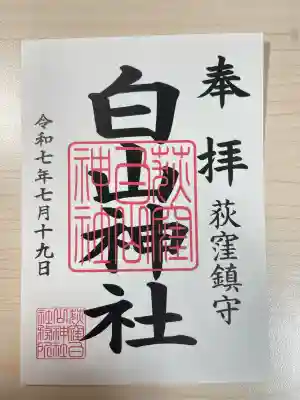 奉拝
荻窪鎮守
白山神社
荻窪白山神社
令和七年七月十九日
荻窪白山神社社務所